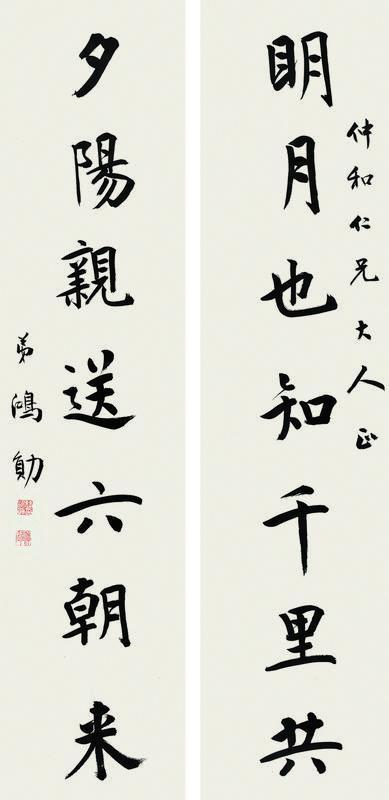 仲和仁兄大人正
明月也知千里共
夕陽親送六朝来
弟鴻勛